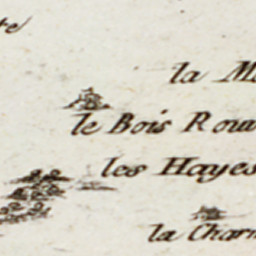 la M
le Bois Rou
les Hayes
la Char